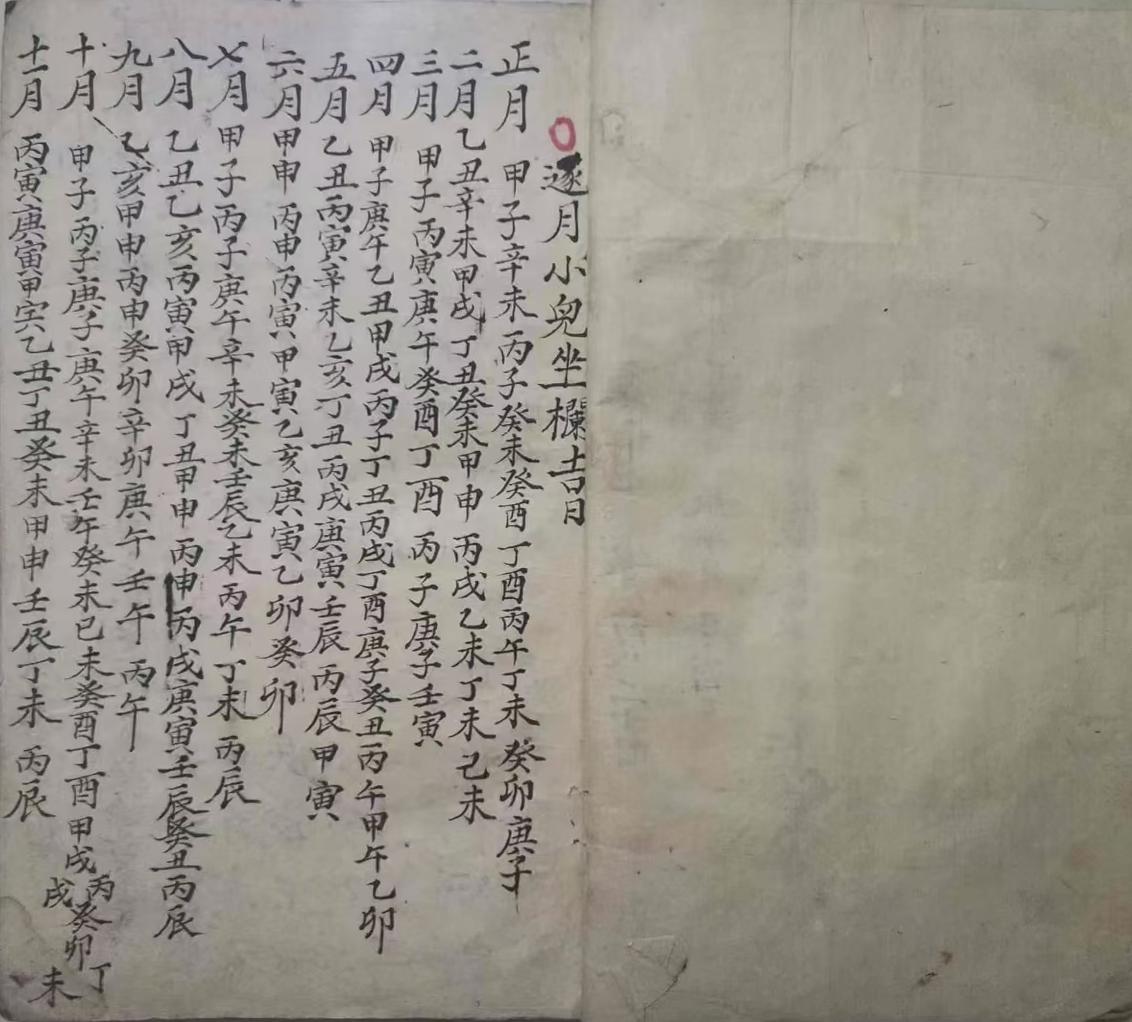 逐月小兒坐欄吉日
正月 甲子辛未丙子癸未癸酉丁酉丙午丁未癸卯庚子
二月乙丑辛未甲戌丁丑癸未甲申丙戌乙未丁未己未
三月 甲子丙寅庚午癸酉丁酉丙子庚子壬寅
四月 甲子庚午乙丑甲戌丙子丁丑丙戌丁酉庚子癸丑丙午甲午乙卯
五月 乙丑丙寅辛未乙亥丁丑丙戌庚寅壬辰丙辰甲寅
六月甲申丙申丙寅甲寅乙亥庚寅乙卯癸卯
七月 甲子丙子庚午辛未癸未壬辰乙未丙午丁未丙辰
八月 乙丑乙亥丙寅甲戌丁丑甲申丙申丙戌庚寅壬辰癸丑丙辰
九月 乙亥甲申丙申癸卯辛卯庚午壬午丙午
十月 甲子丙子庚子庚午辛未壬午癸未已未癸酉丁酉甲戌丙戌癸卯丁未
十一月 丙寅庚寅甲寅乙丑丁丑癸未甲申壬辰丁未丙辰